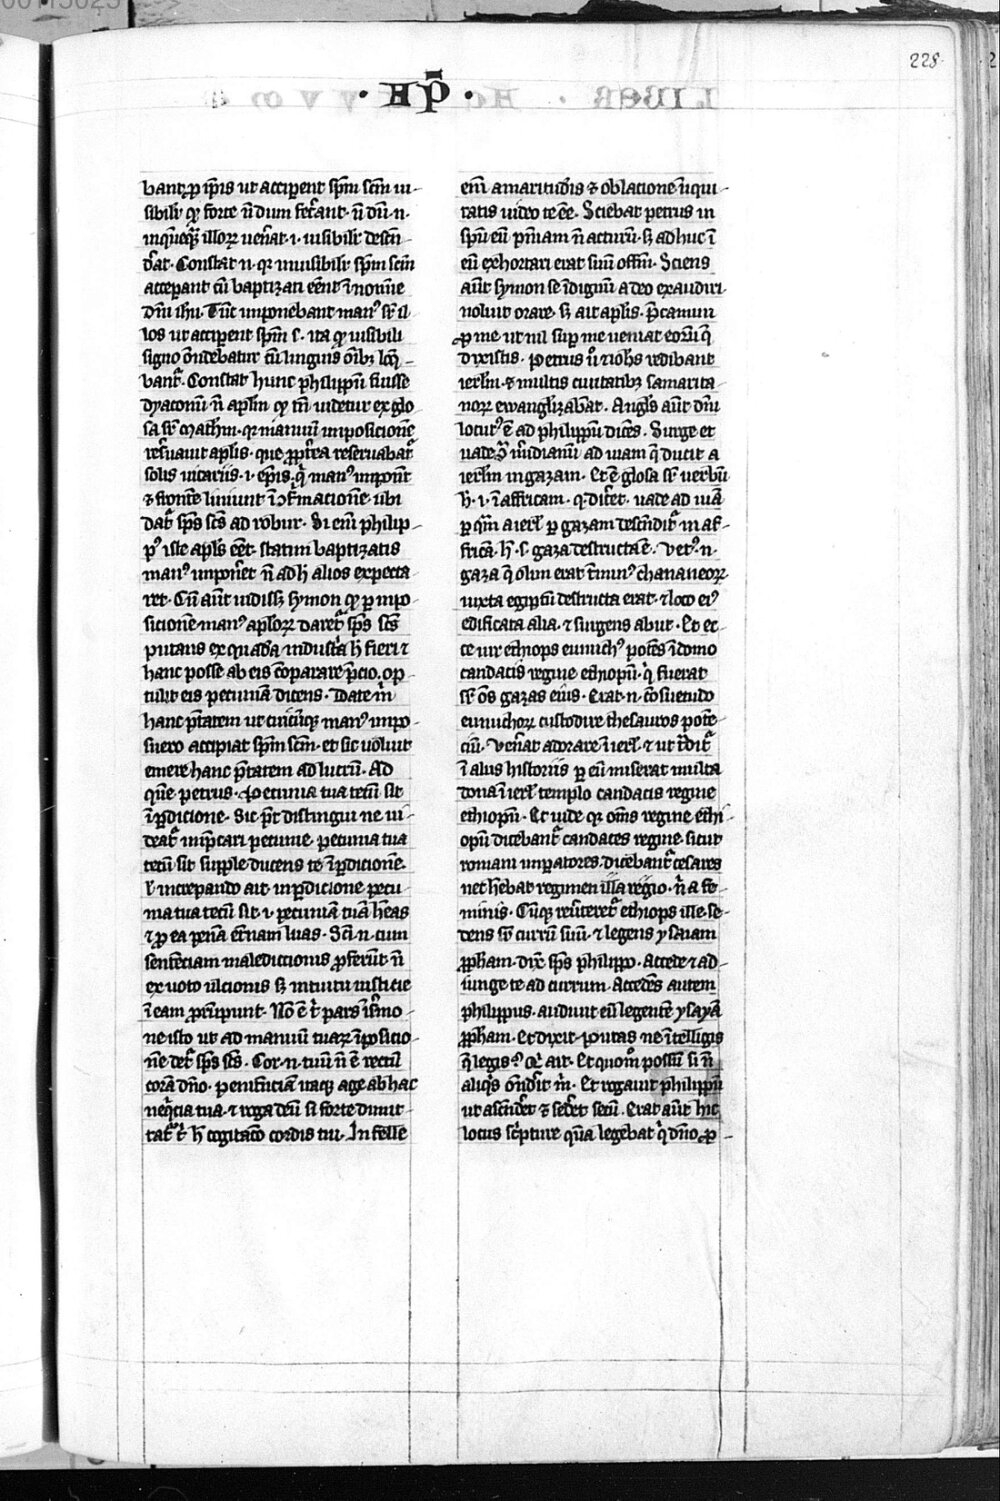 228
· ap̄ ·
bant ꝓ ip̄is ut acciperent sp̄m sc̄m ui-
sibilr̄ qͥ forte n̄dum fec̄ant · n̄ dū · n ·
in quēqͣ illoꝝ uen̄at · i · uisibilr̄ descen̄
d̄at · Constat · n · qꝛ inuisibilr̄ sp̄m sc̄m
acceperant cū baptizati eēnt ī noīne
dn̄i ihū · Tūc imponebant manꝰ sr̄ il
los ut acciperent sp̄m s · ita qͥ uisibili
signo on̄debatur cū linguis oībꝫ loq̄-
bantᷣ · Constat hunc philippū fuisse
dyaconū n̄ aplm̄ qͥ tn̄ uidetur ex glo
sa sr̄ mathm̄ · qꝛ manuū imposicionē
res̄uauit aplis · que ꝓpt̄ea reseruabatᷣ
solis uicariis · i · ep̄is · q̄ manꝰ inponūt
⁊ frontē liniunt ī ꝯfirmacione ubi
datᷣ sp̄s sc̄s ad robur · Si enī philip-
pꝰ iste apls̄ eēt · statim baptizatis
manꝰ inpon̄et n̄ adh̄ alios expecta
ret · Cū aūt uidisꝫ symon qͥ p̱ inpo-
sicionē manꝰ aploꝝ daretᷣ sp̄s sc̄s
putans ex quadā industͥa h̄ fieri ⁊
hanc posse ab eis cōparare p̄cio · op-
tulit eis pecuniā dicens · Date m̄
hanc ptātem ut cuicūqꝫ manꝰ inpo-
suero accipiat sp̄m sc̄m · et sic uoluit
emere hanc ptātem ad lucrū · Ad
quē petrus · Pecunia tua tecū sit
ī ꝑdicione · Sic pt̄ distingui ne ui-
deatᷣ īmp̄cari pecunie · pecunia tua
tecū sit supple ducens te ī ꝑdicionē ·
l̄ increpando ait in ꝑdicione pecu-
nia tua tecū sit · i · pecuniam tuā h̄eas
⁊ ꝓ ea penā et̄nam luas · Sc̄i · n · cum
sentēciam maledictionis ꝓferūt n̄
ex uoto ulcionis sꝫ intuitu iusticie
ī eam prorūpunt · Nō ē t̄ pars ī s̄mo-
ne isto ut ad manuū tuaꝝ īposicio
nē det̄ sp̄s sc̄s · Cor · n · tuū n̄ ē rectū
corā dn̄o · penitēciā itaqꝫ age ab hac
neqͥcia tua · ⁊ roga deū si forte dimit-
tatᷣ t̄ h̄ cogitacō cordis tui · In felle
enī amaritud̄is ⁊ oblacione īiqui-
tatis uideo te eē · Sciebat petrus in
sp̄u eū pn̄iam n̄ acturū · sꝫ adhuc ī
eū exhortari erat suū offm̄ · Sciens
aūt symon se īdignū a deo exaudiri
noluit orare · sꝫ ait aplis · P̄camini
ꝓ me ut nil suꝑ me ueniat eorū q̄
dixistis · Petrus ū̄ ⁊ iohs̄ redibant
ierlm̄ · ⁊ multis ciuitatibꝫ samarita
noꝝ ewanglizabāt · Angls̄ aūt dn̄i
locutꝰ ē ad philippū dicēs · Surge et
uade ꝯͣ m̄idianū ad uiam q̄ ducit a
ierlm̄ in gazam · Et ē glosa sr̄ uerbū
h̄ · i · ī affricam · q · dic̄et · uade ad uiā
ꝑ quā a ierl̄ ꝑ gazam descenditᷣ in af-
fricā · h̄ · s · gaza destructa ē · Vetꝰ · n ·
gaza q̄ olim erat t̄minꝰ chananeoꝝ
iuxta egiptū destructa erat · ⁊ loco eiꝰ
edificata alia · ⁊ surgens abiit · Et ec
ce uir ethiops eunuchꝰ potēs ī domo
candacis regine ethiopū · qͥ fuerat
sr̄ oēs gazas eius · Erat · n · cōsuetudo
eunuchoꝝ custodire thesauros potē
ciū · Ven̄at adorare ī ierl̄ ⁊ ut t̄ditᷣ
ī aliis historiis ꝑ eū miserat multa
dona ī ierl̄ templo candacis regine
ethiopū · Et uide qꝛ om̄s regine ethi-
opū dicebantᷣ candaces regine · sicut
romani inperatores dicebantᷣ cesares
nec h̄ebat regimen illa regio · n̄ a fe-
minis · Cūqꝫ reu̇teretᷣ ethiops ille se-
dens sr̄ currū suū · ⁊ legens ysaiam
ꝓpham · dix̄ sp̄s philippo · Accede ⁊ ad-
iunge te ad currum · Accedēs autem
philippus · audiuit eū legentē ysayā
ꝓpham · Et dixit · putas ne ītelligis
q̄ legis? Qͥ ait · Et quom̊ possū si n̄
aliqͥs on̄dit m̄ · Et rogauit philippū
ut ascend̄et ⁊ sed̄et secū · Erat aūt hic
locus sc̄pture quā legebat qͥ dn̄o ꝓ-